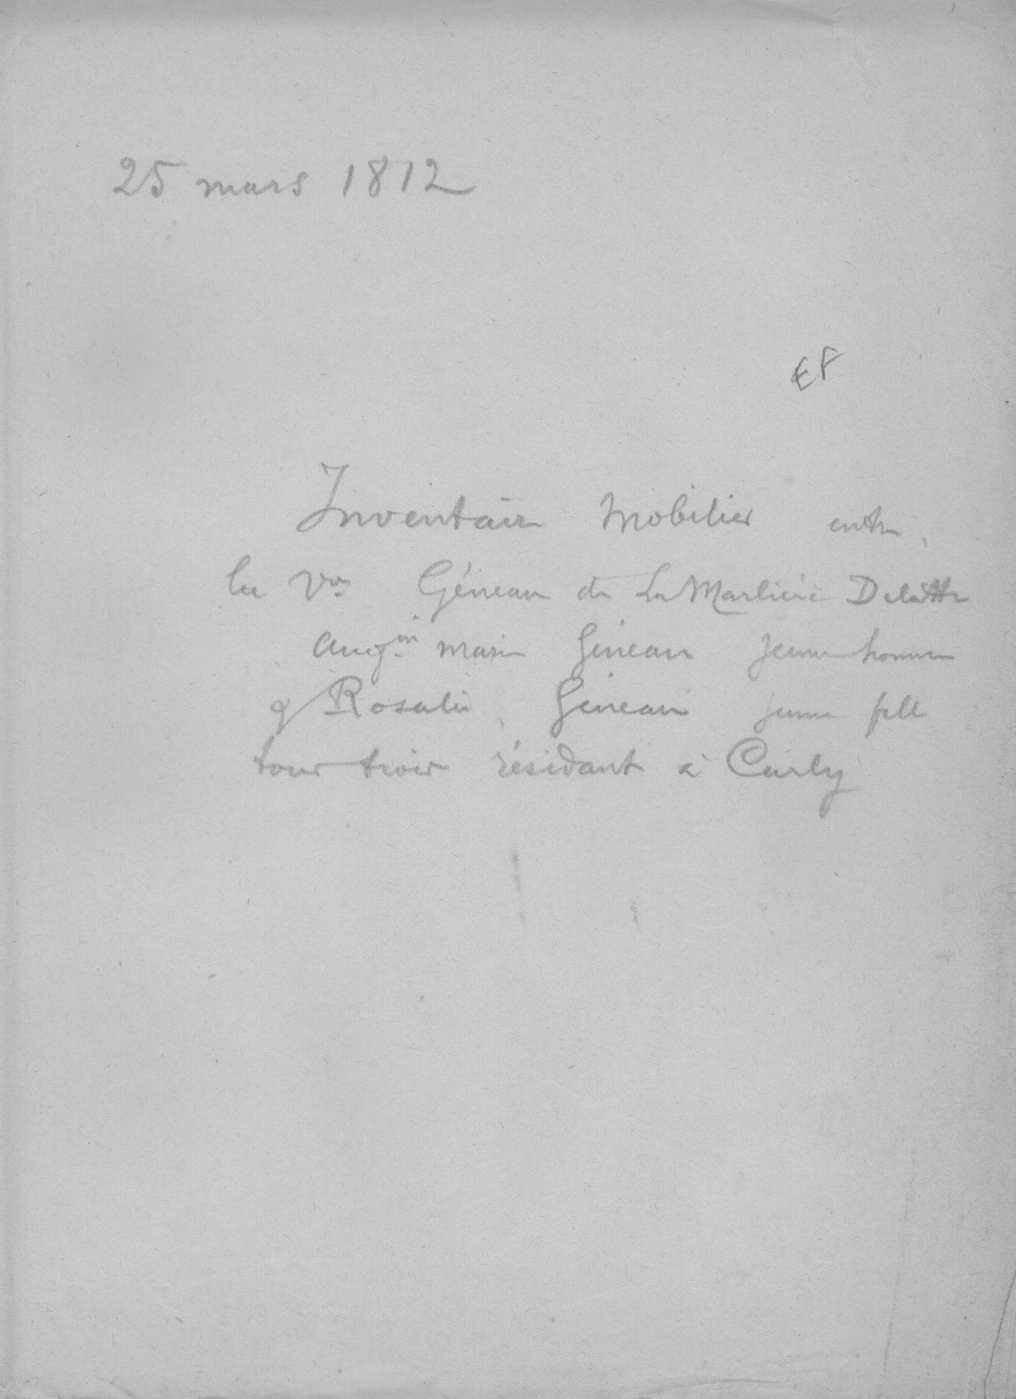 25 mars 1812
EF
Inventaire Mobilier entre
la Vve Géneau de La Marlière Delattre
Augin marie Géneau jeune homme
& Rosalie Géneau jeune fille
tous trois résidant à Carly